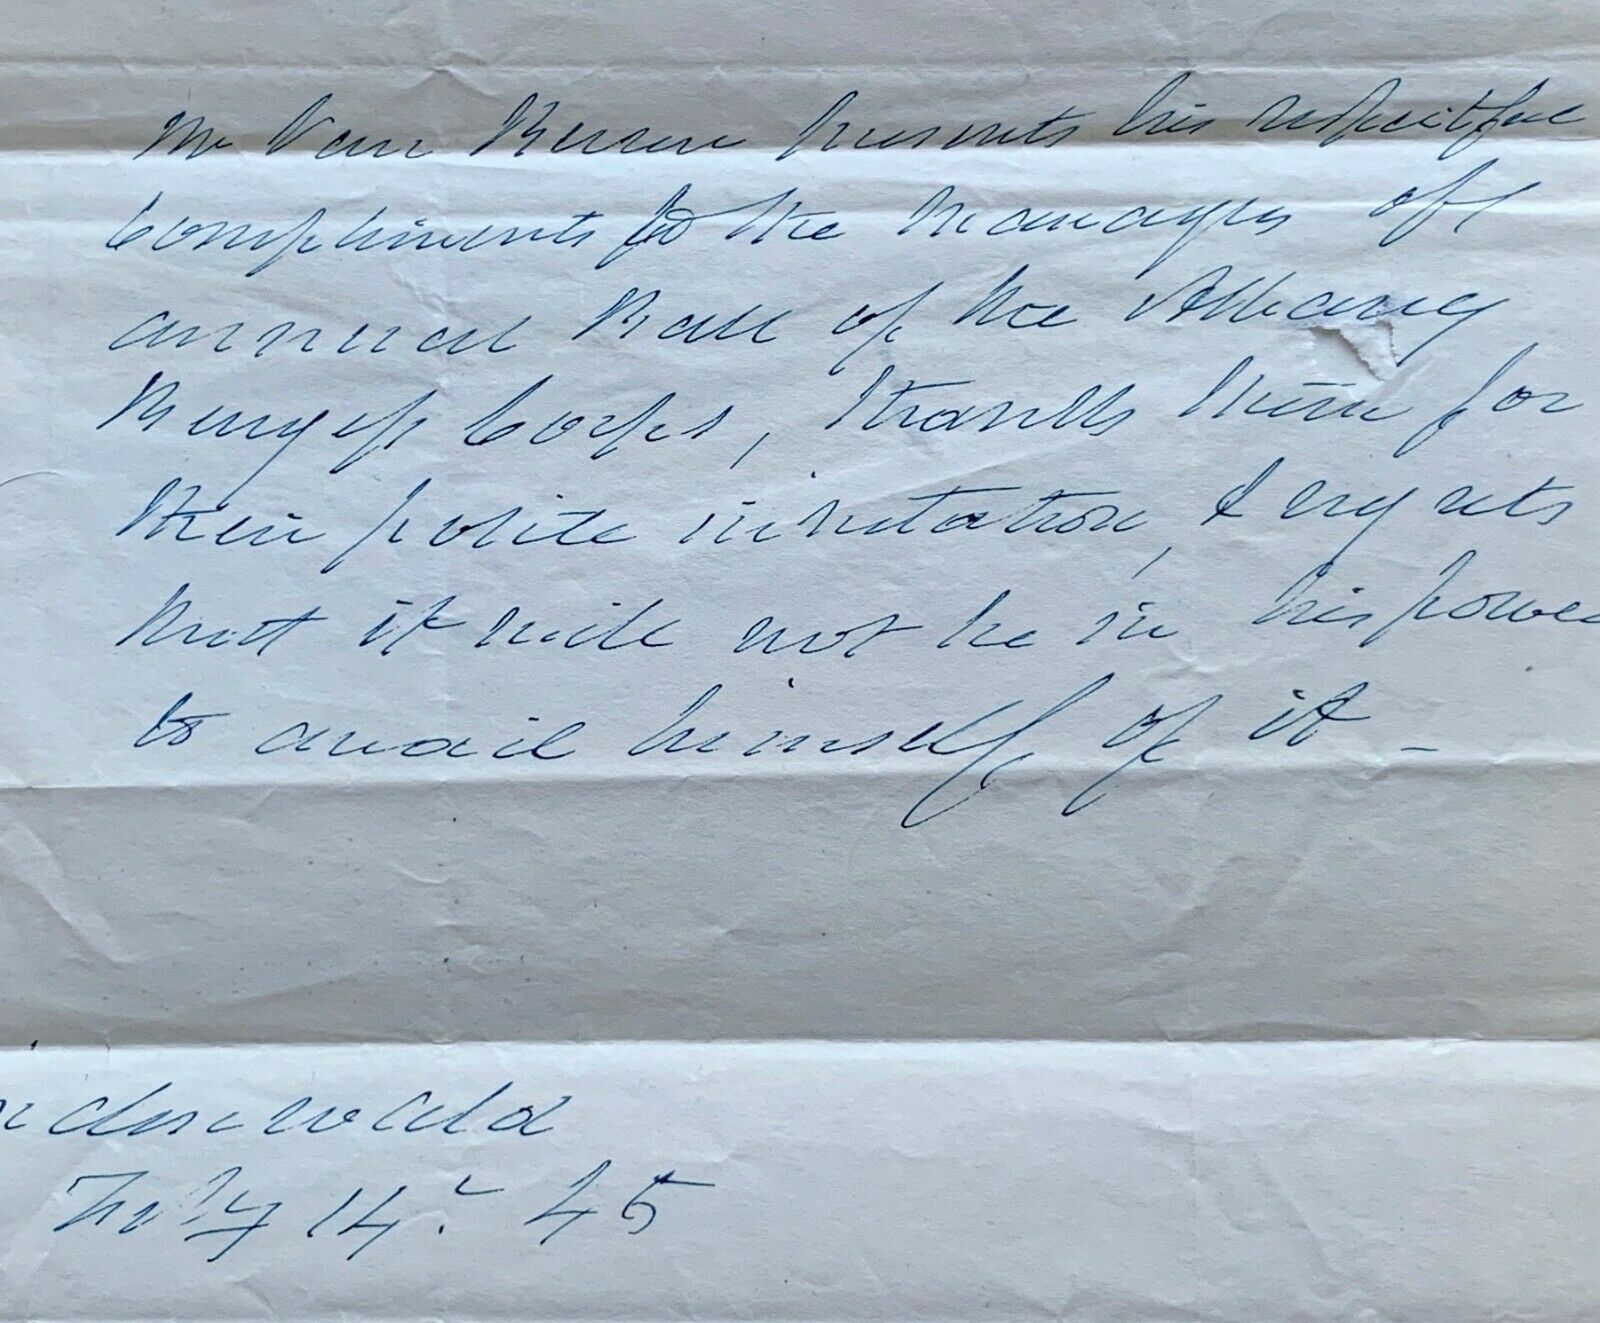 Mr Van Buren presents his respectful
Compliments to the Managers of
annual Ball of the Albany
Burgess Corps, thanks them for
their polite invitation, & regrets
that it will not be in his power
to avail himself of it -
indenwald
Feby 14. 45